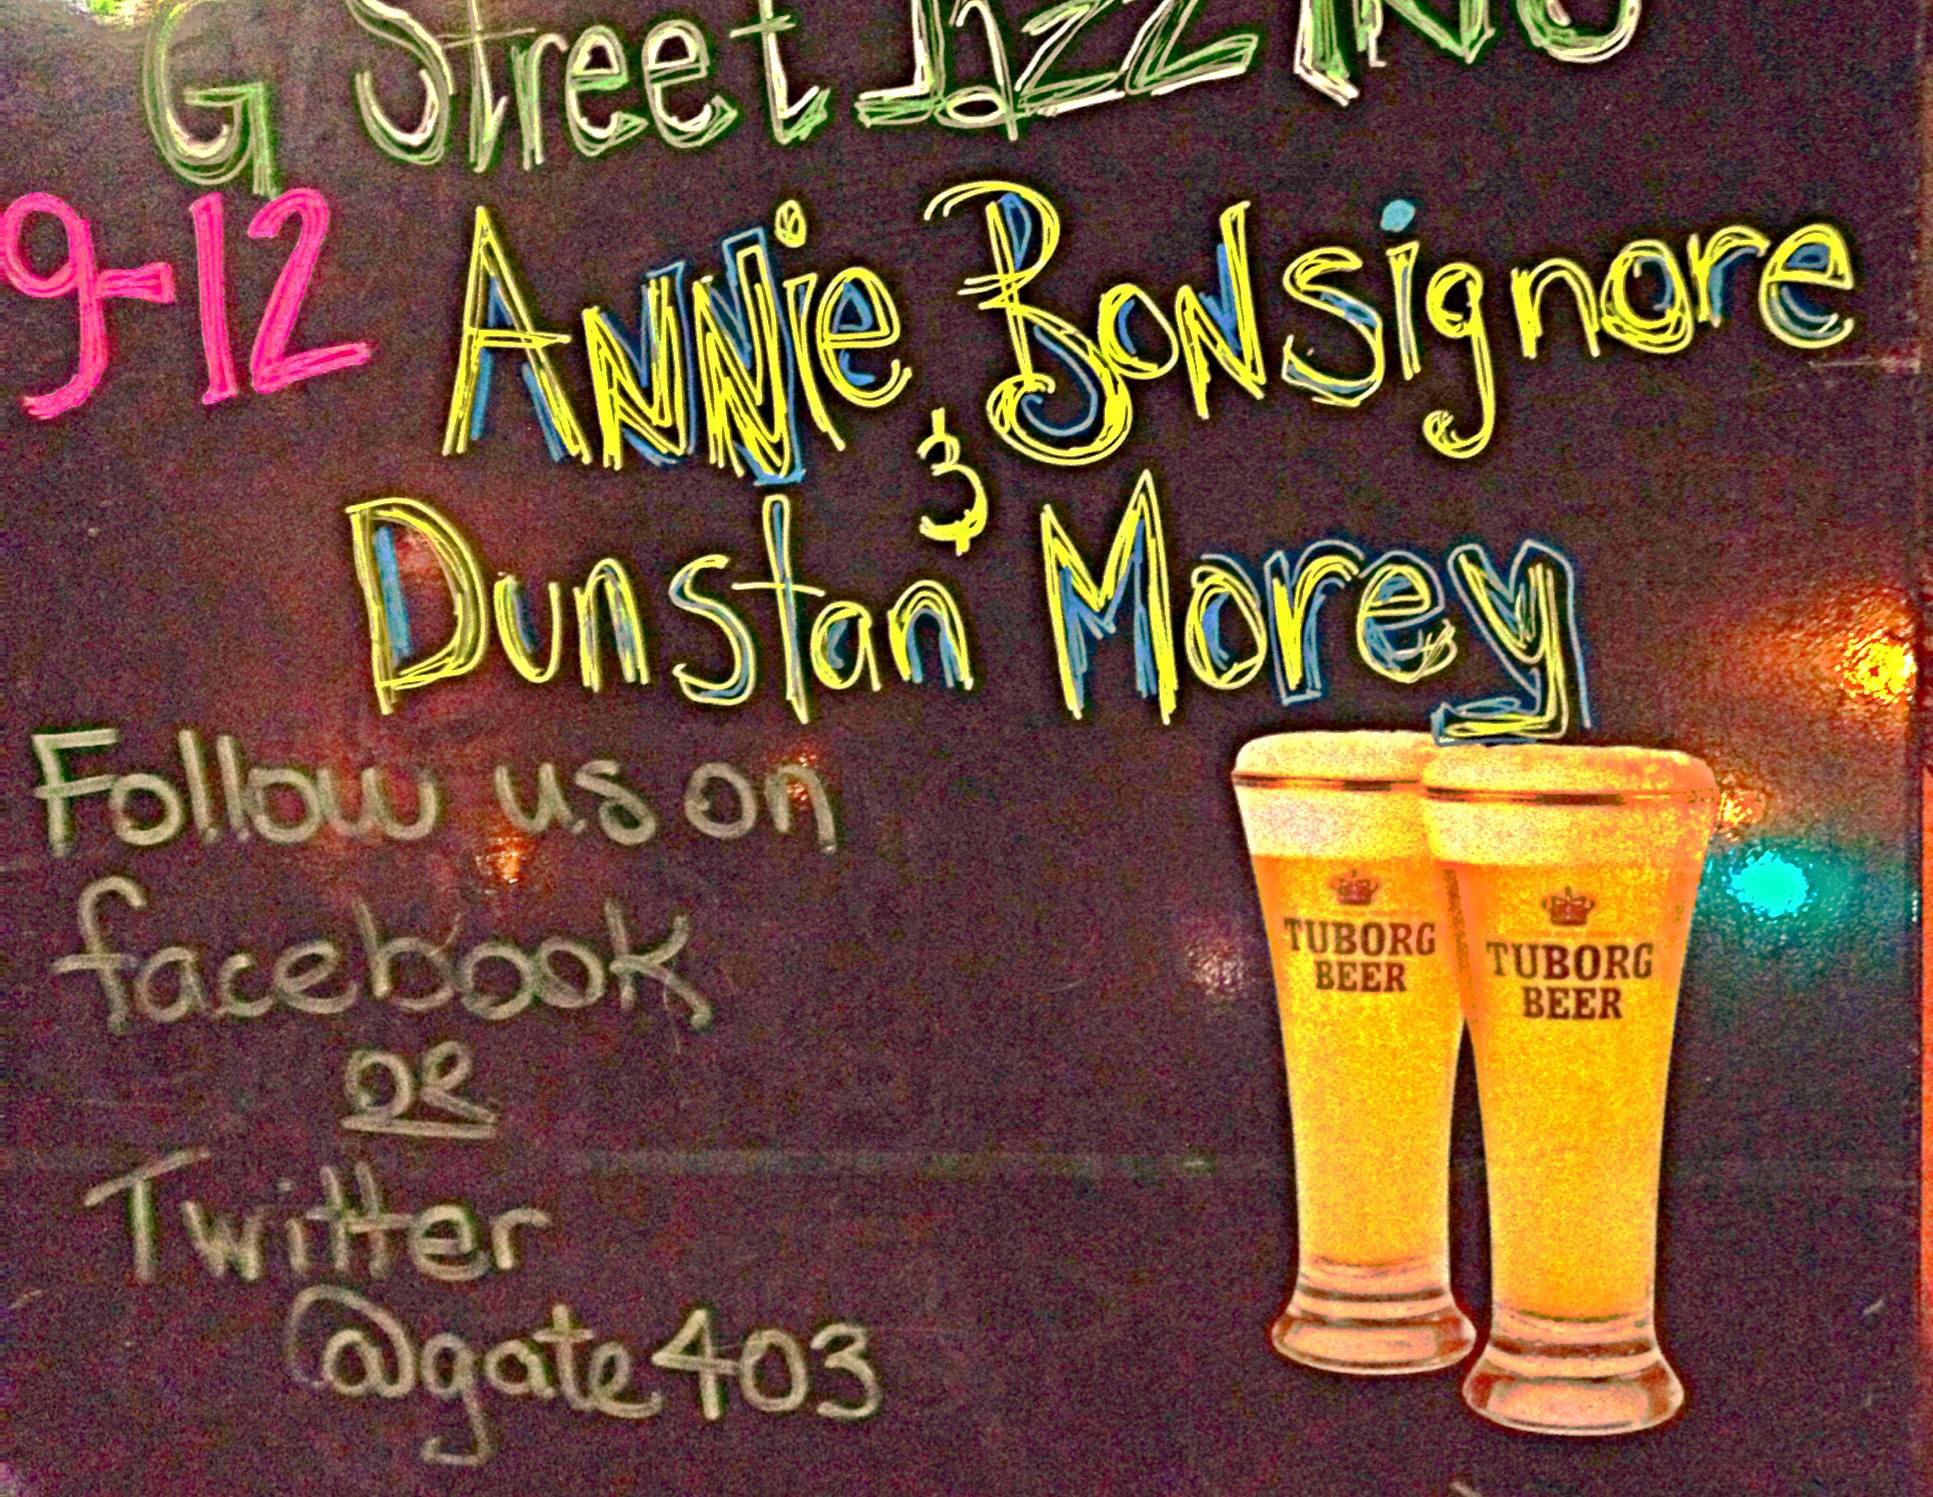 G Street Jazz Trio
9-12 Annie Bonsignore
&
Dunstan Morey
Follow us on
facebook
OR
Twitter
@gate403
TUBORG
BEER
TUBORG
BEER